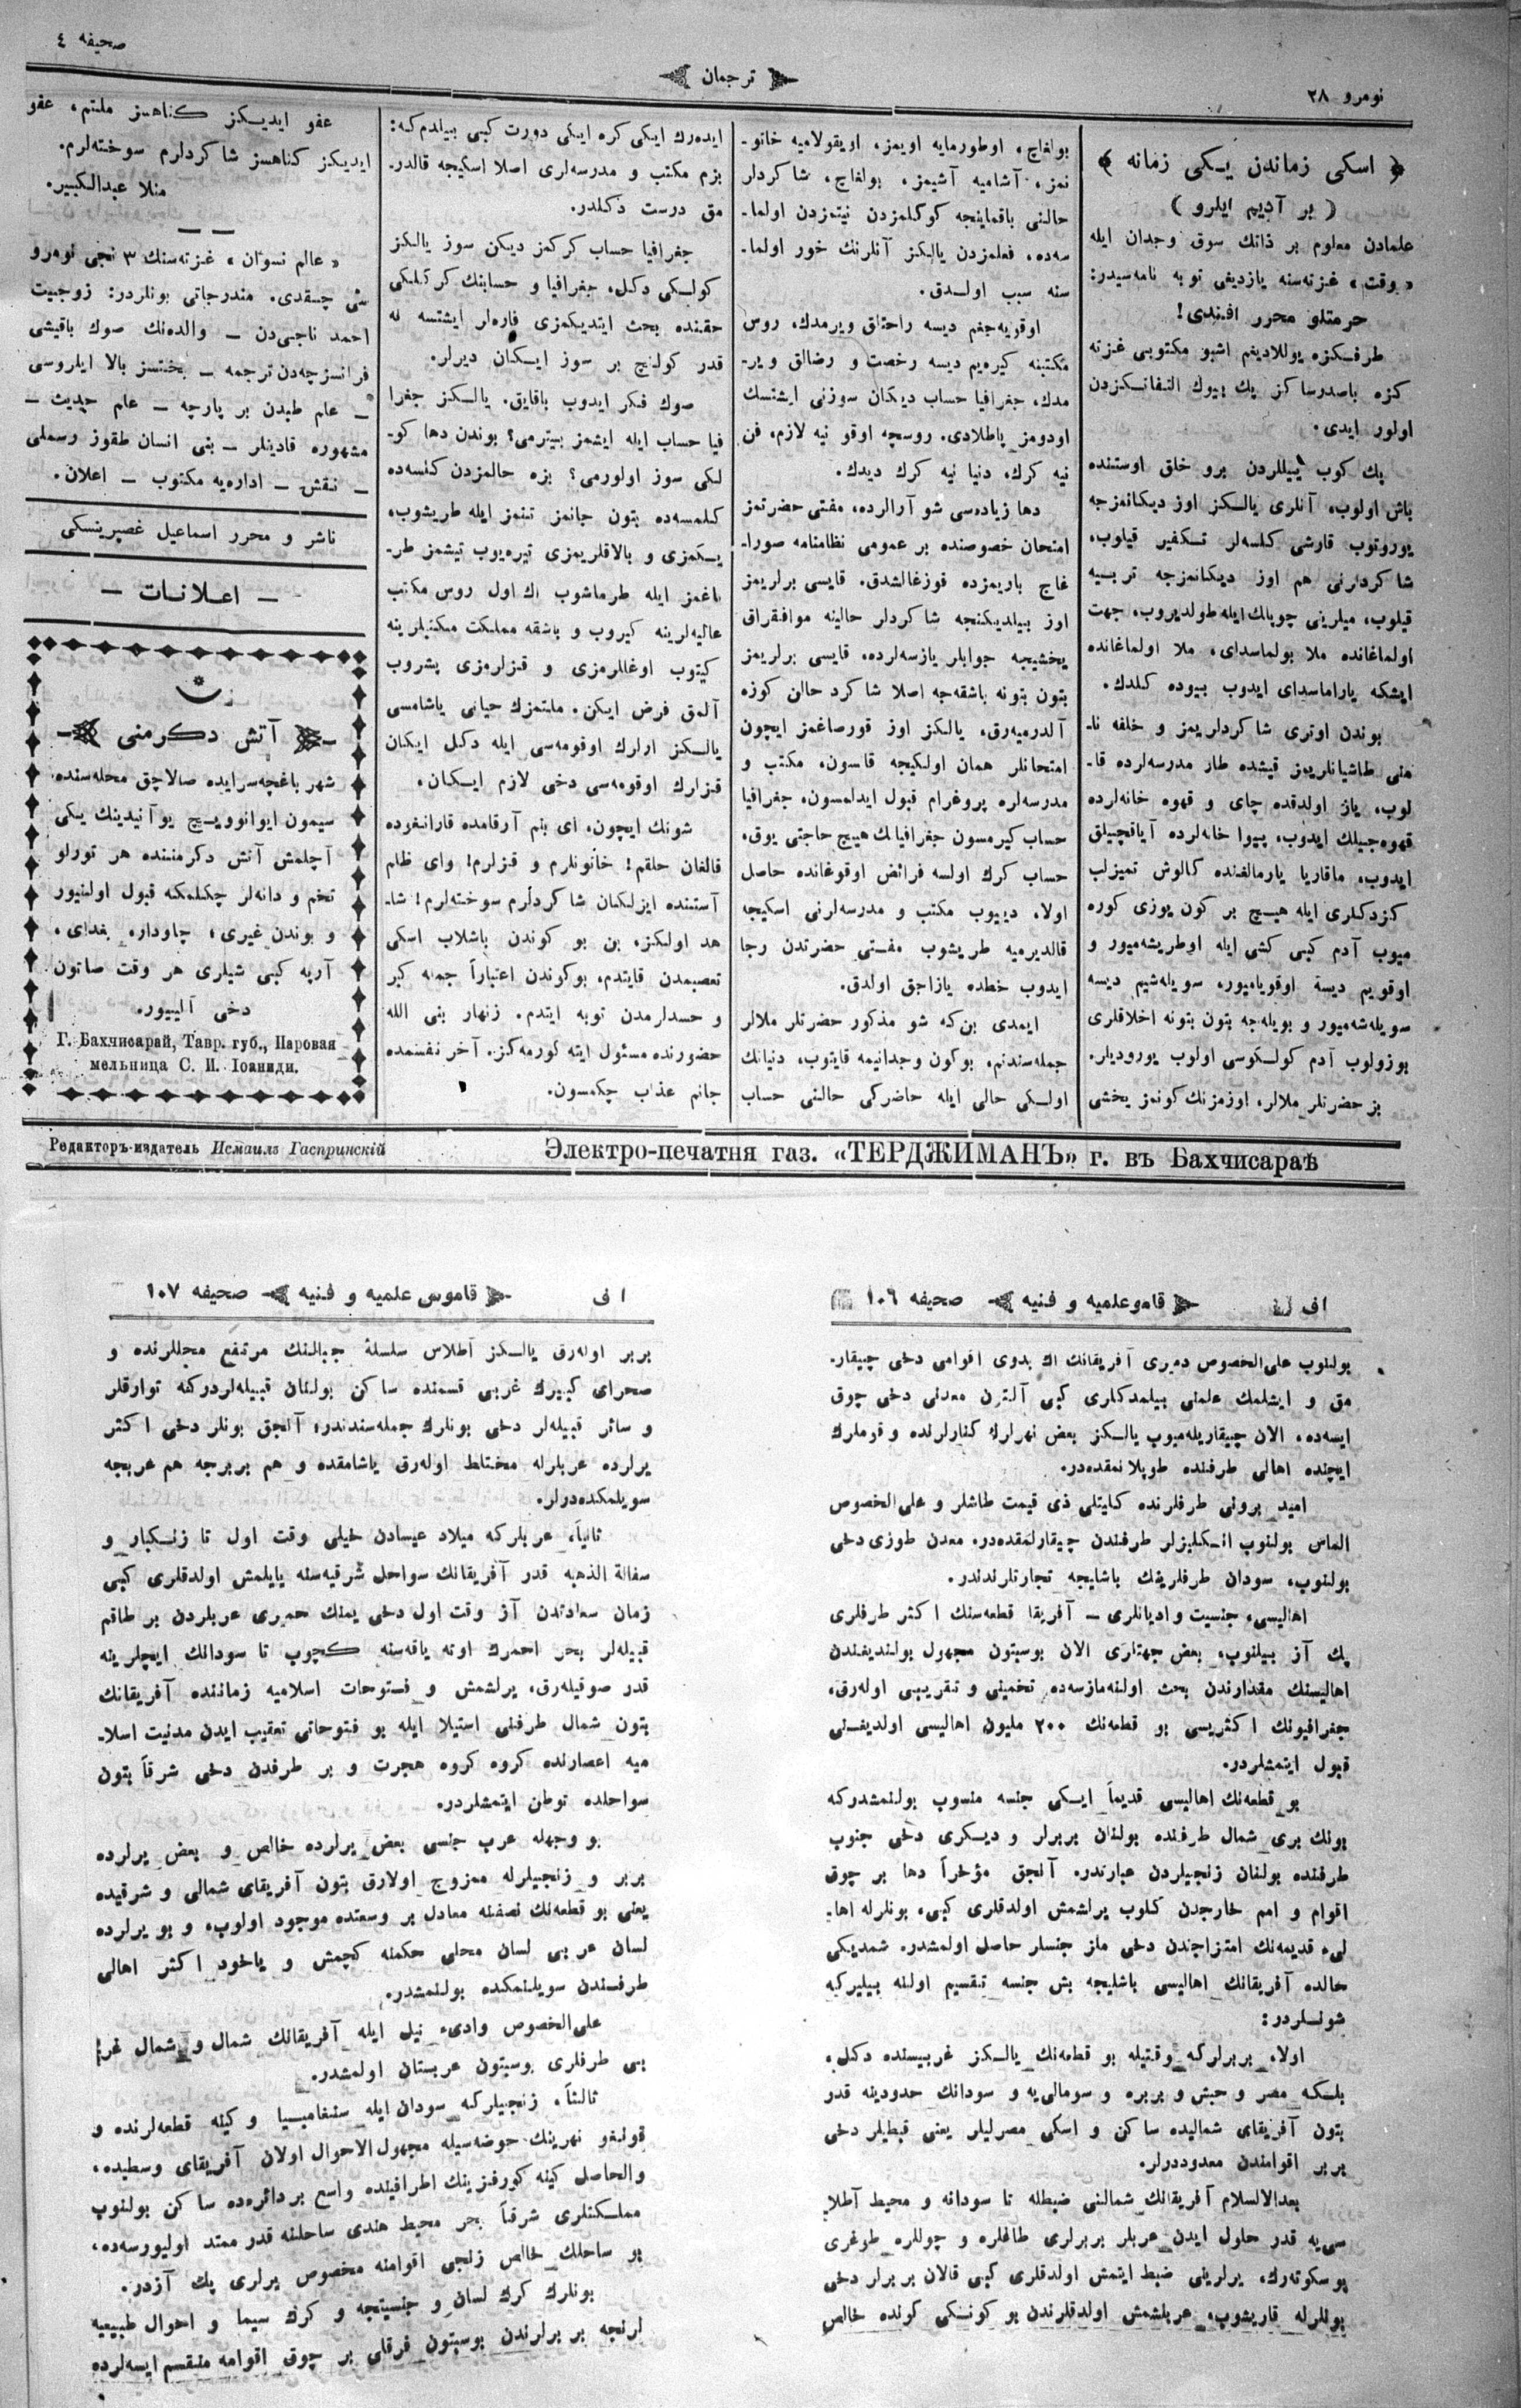 نومرو ٢٨
ترجمان
صحيفه ٤
اسكی زماندن يـكی زمانه
( بر آديم ايلرو )
علمادن معلوم بر ذاتك سوق وجدان ايله
«وقت» غزته‌سنه يازديغی توبه نامه‌سيدر:
حرمتلو محرر افندی!
طرفـكزه يوللاديغم اشبو مكتوبی غزته
كزه باصدرساكز پك بيوك التفاتـكزدن
اولور ايدی.
پك كوب ييللردن برو خلق اوستنده
باش اولوب، آنلری يالـكز اوز ديكانمزجه
يوروتوب قارشی كلسه‌لر تـكفير قيلوب،
شاكردلرنی هم اوز ديكانمزجه تربـيه
قيلوب، ميلرينی چوپاك ايله طولديروب، جهت
اولماغانده ملا بولماسدای، ملا اولماغانده
ايشكه ياراماسدای ايدوب بيوده كلدك.
بوندن اوتری شاكردلريمز و خلفه نا-
منی طاشيانلريمز قيشده طار مدرسه‌لرده قا-
لوب، ياز اولدقده چای و قهوه خانه‌لرده
قهوه‌جيلك ايدوب، پيوا خانه‌لرده آياقچيلق
ايدوب، ماقاريا يارمالغنده كالوش تميزلب
كزدكلری ايله هيـچ بر كون يوزی كوره
ميوب آدم كبی كشی ايله اوطريشه‌ميور و
اوقويم ديسة اوقوياميور، سويله‌شيم ديسه
سويله‌شه‌ميور و بويله‌جه بتون بتونه اخلاقلری
بوزولوب آدم كولـكوسی اولوب يوروديلر.
بز حضرتلر ملالر، اوزمزنك كونمز يخشی
بولغاچ، اوطورمايه اويمز، اويقولاميه خاتو-
نمز، آشاميه آشيمز، بولغاچ، شاكردلر
حالنی باقماينجه كوكلمزدن نيتمزدن اولما-
سه‌ده، فعلمزدن يالـكز آنلرنك خور اولما-
سنه سبب اولـدق.
اوقريه‌جغم ديسه راحتاق ويرمدك، روس
مكتبنه كيره‌يم ديسه رخصت و رضالق وير-
مدك، جغرافيا حساب ديكان سوزنی ايشتسك
اودومز پاطلادی. روسچه اوقو نيه لازم، فن
نيه كرك، دنيا نيه كرك ديدك.
دها زياده‌سی شو آرالرده، مفتی حضرتمز
امتحان خصوصنده بر عمومی نظامنامه صورا-
غاچ باريمزده قوزغالشدق. قايسی برلريمز
اوز بيلديـكنجه شاكردلر حالينه موافقراق
يخشيجه جوابلر يازسه‌لرده، قايسی برلريمز
بتون بتونه باشقه‌جه اصلا شاكرد حالن كوزه
آلدرميه‌رق، يالـكز اوز قورصاغمز ايچون
امتحانلر همان اولكيجه قاسون، مكتب و
مدرسه‌لره پروغرام قبول ايدلمسون، جغرافيا
حساب كيرمسون جغرافيانك هيچ حاجتی يوق،
حساب كرك اولسه فرائض اوقوغانده حاصل
اولا، دييوب مكتب و مدرسه‌لرنی اسكيجه
قالديرميه طريشوب مفـتی حضرتدن رجا
ايدوب خطده يازاجق اولدق.
ايمدی بن‌كه شو مذكور حضرتلر ملالر
جمله‌سندنم. بوكون وجدانيمه قايتوب، دنيانك
اولـكی حالی ايله حاضركی حالنی حساب
ايده‌رك ايـكی كره ايـكی دورت كبی بيلدم‌كه:
بزم مكتب و مدرسه‌لری اصلا اسكيجه قالدر-
مق درست دكلدر.
جغرافيا حساب كركمز ديكن سوز يالـكز
كولـكی دكل، جغرافيا و حسابنك كركلـكی
حقنده بحث ايتديـكمزی قاره‌لر ايشتسه نه
قدر كولنچ بر سوز ايـكان ديرلر.
صوك فـكر ايدوب باقايق. يالـكز جغرا
فيا حساب ايله ايشمز بيترمی؟ بوندن دها كو-
لكی سوز اولورمی؟ بزه حالمزدن كلسه‌ده
كلمسه‌ده بتون جانمز تنمز ايله طريشوب،
يـكمزی و بالاقلريمزی تيره‌يوب تيشمز طر-
ناغمز ايله طرماشوب اك اول روس مكتب
عاليه‌لرينه كيروب و باشقه مملـكت مـكتبلرينه
كيتوب اوغللرمزی و قـزلرمزی پشروب
آلمق فرض ايـكن. ملـتمزك حياتی ياشامسی
يالـكز ارلرك اوقومه‌سی ايله دكل ايـكان
قـزلرك اوقومه‌سی دخی لازم ايـكان.
شونك ايچون، ای بنم آرقامده قارانغوده
قالغان خلقم! خاتونلرم و قـزلرم! وای ظلم
آستنده ايزلكان شاكردلرم سوخته‌لرم! شا-
هد اولـكز، بن بو كوندن باشلاب اسكی
تعصبمدن قايتدم، بوكوندن اعتباراً جمله كبر
و حسدلرمدن توبه ايتدم. زنهار بنی الله
حضورنده مسئول ايته كورمه‌كز. آخر نفسمده
جانم عذاب چكمسون.
عفو ايديـكز كـناهسز ملتم، عفو
ايديـكز كناهسز شاكردلرم سوخته‌لرم.
منلا عبدالـكبير.
«عالم نسوان» غزته‌سنك ٣ نجی نومرو
سی چـقدی. مندرجاتی بونلردر: زوجيت
احمد ناجی‌دن — والده‌نك صوك باقيشی
فرانسزچه‌دن ترجمه — بختسز بالا ايلروسی
— عام طبدن بر پارچه — عام حديث —
مشهوره قادينلر — بتی انسان طقوز رسملی
— نقش — اداره‌يه مكتوب — اعلان.
ناشر و محرر اسماعيل غصپرينسكی
— اعـلانـات —
آتش دكـرمنی
شهر باغچه‌سرايده صالاچق محله‌سنده
سيمون ايوانوويـچ يوآنيدينك يـكی
آچلمش آتش دكرمننده هر تورلو
تخم و دانه‌لر چكلمكه قبول اولنيور
و بوندن غيری، چاودار، بغدای،
آرپه كبی شيلری هر وقت صاتون
دخی آلييور.
Г. Бахчисарай, Тавр. губ., Паровая
мельница С. И. Іоаниди.
Редакторъ-издатель Исмаилъ Гаспринскій
Электро-печатня газ. «ТЕРДЖИМАНЪ» г. въ Бахчисараѣ
اف
قاموعلميه و فـنيه
صحيفه ١٠٦
بولنوب علی‌الخصوص دميری آفريقانك اك بدوی اقوامی دخی چيقار-
مق و ايشلمك علمنی بيلمدكلری كبی آلتون معدنی دخی چوق
ايسه‌ده، الان چيقاريله‌ميوب يالـكز بعض نهرلرك كنارلرنده و قوملرك
ايچنده اهالی طرفنده طوپلانمقده‌در.
اميد بروتی طرفلرنده كليتلی ذی قيمت طاشلر و علی‌الخصوص
الماس بولنوب انـكليزلر طرفندن چيقارلمقده‌در. معدن طوزی دخی
بولنوب، سودان طرفلرينك باشليجه تجارتلرندندر.
اهاليسی، جنسيت و اديانلری — آفريقا قطعه‌سنك اكثر طرفلری
پك آز بيلنوب، بعض جهتلری الان بوسبتون مجهول بولنديغندن
اهاليسنك مقدارندن بحث اولنه‌مازسه‌ده تخمينی و تـقريبی اوله‌رق،
جغرافيونك اكثريسی بو قطعه‌نك ٢٠٠ مليون اهاليسی اولديغـنی
قبول ايتمشلردر.
بو قطعه‌نك اهاليسی قديماً ايـكی جنسه منسوب بولنمشدركه
بونك بری شمال طرفنده بولنان بربرلر و ديـكری دخی جنوب
طرفنده بولنان زنجيلردن عبارتدر. آنجق مؤخراً دها بر چوق
اقوام و امم خارجدن كلوب يرلشمش اولدقلری كبی، بونلرله اها-
لیء قديمه‌نك امتزاجندن دخی ماز جنسلر حاصل اولمشدر. شمديـكی
حالده آفريقانك اهاليسی باشليجه بش جنسه تـقسيم اولنه بيليركه
شونـلردر:
اولا، بربرلركه وقتيله بو قطعه‌نك يالـكز غربيسنده دكل،
بلـكه مصر و حبش و بربره و سومالی‌يه و سودانك حدودينه قدر
بتون آفريقای شماليده ساكن و اسكی مصرليلر يعنی قبطيلر دخی
بربر اقوامندن معدوددرلر.
بعدالاسلام آفريقانك شمالنی ضبطله تا سودانه و محيط آطلا
سی‌يه قدر حلول ايدن عربلر بربرلری طاغلره و چوللره طوغری
پوسكوته‌رك، يرلرينی ضبط ايتمش اولدقلری كبی قالان بربرلر دخی
بونلرله قاريشوب، عربلشمش اولدقلرندن بو كونـكی كونده خالص
اف
قاموس علميه و فـنيه
صحيفه ١٠٧
بربر اوله‌رق يالـكز آطلاس سلسلهٔ جبالنك مرتفع محللرنده و
صحرای كبيرك غربی قسمنده ساكن بولنان قبيله‌لردركه توارقلر
و سائر قبيله‌لر دخی بونلرك جمله‌سندندر، آنجق بونلر دخی اكثر
يرلرده عربلرله مختلط اوله‌رق ياشامقده و هم بربرجه هم عربجه
سويلمكده‌درلر.
ثانياً، عربلركه ميلاد عيسادن خيلی وقت اول تا زنـكبار و
سفالة الذهبه قدر آفريقانك سواحل شرقيه‌سنه يايلمش اولدقلری كبی
زمان سعادتدن آز وقت اول دخی يمنك حميری عربلردن بر طاقم
قبيله‌لر بحر احمرك اوته ياقه‌سنه كـچوب تا سودانك ايچلرينه
قدر صوقيله‌رق، يرلشمش و فـتوحات اسلاميه زماننده آفريقانك
بتون شمال طرفنی استيلا ايله بو فتوحاتی تعقيب ايدن مدنيت اسلا-
ميه اعصارنده كروه كروه هجرت و بر طرفدن دخی شرقاً بتون
سواحلده توطن ايتمشلردر.
بو وجهله عرب جنسی بعض يرلرده خالص و بعض يرلرده
بربر و زنجيلرله ممزوج اولارق بتون آفريقای شمالی و شرقيده
يعنی بو قطعه‌نك نصفنه معادل بر وسعتده موجود اولوب، و بو يرلرده
لسان عربی لسان محلی حكمنه كچمش و ياخود اكثر اهالی
طرفـندن سويلنمكده بولنمشدر.
علی‌الخصوص وادیء نيل ايله آفريقانك شمال و شمال غر؛
بی طرفلری بوسبتون عربستان اولمشدر.
ثالثاً، زنجيلركه سودان ايله سنغامبـيا و كينه قطعه‌لرنده و
قونغو نهرينك حوضه‌سيله مجهول‌الاحوال اولان آفريقای وسطيده،
والحاصل كينه كورفزينك اطرافيـنده واسع بر دائره‌ده ساكن بولنوب
مملـكتلری شرقـاً بحر محيط هندی ساحلنه قدر ممتد اوليورسه‌ده،
بو ساحلك خالص زنجی اقوامنه مخصوص يرلری پك آزدر.
بونلرك كرك لسان و جنسيتجه و كرك سيما و احوال طبيعيه
لرنجه بربرلرندن بوسبتون فرقلی بر چوق اقوامه منقسم ايسه‌لرده